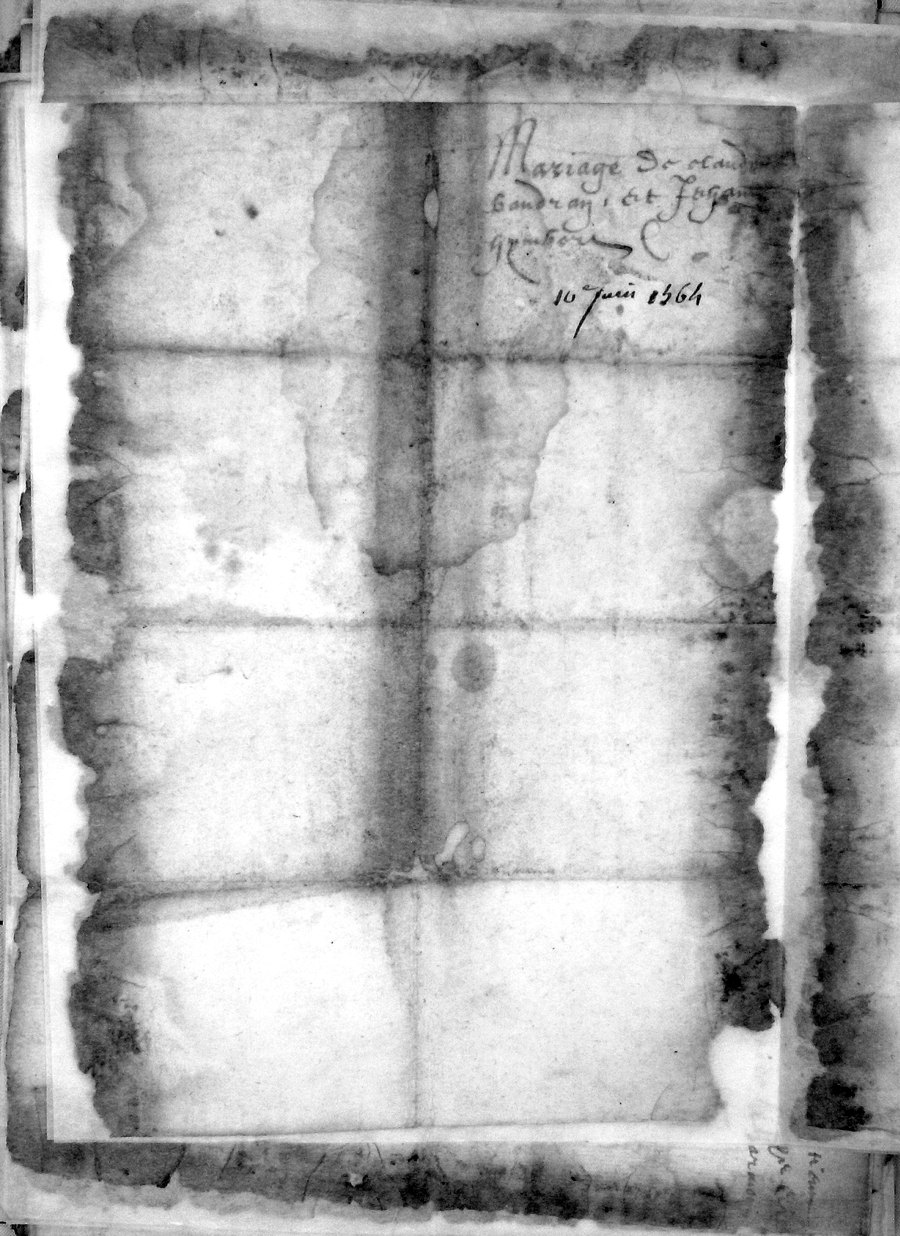 Mariage De claude
baudran, et Jehanne
gymbert
10e Juin 1564